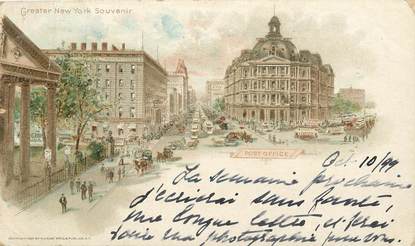 Greater New York Souvenir
POST OFFICE
Oct 10/99
La semaine prochaine
j'écrirai sans faute,
une longue lettre, et ferai
faire ma photographie pour vous.